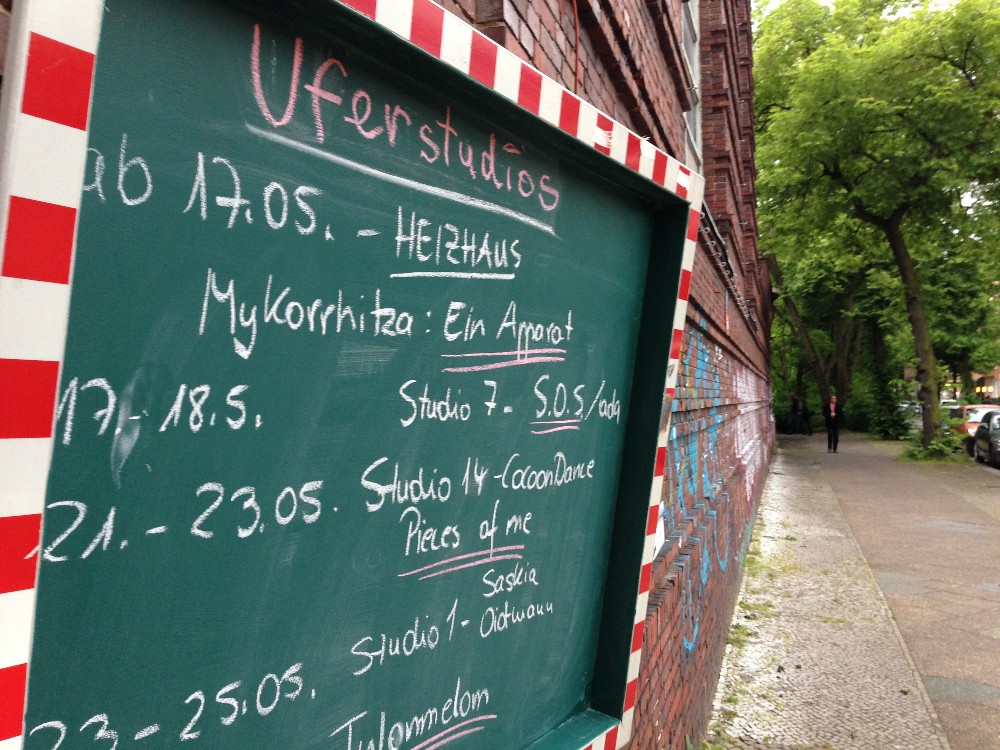 Uferstudios
ab 17.05. - HEIZHAUS
Mykorrhitza: Ein Apparat
17 - 18.5. Studio 7 - S.O.S/
21. - 23.05. Studio 14 - CocoonDance
Pieces of me
Saskia
Studio 1 - Oidtmann
23 - 25.05.